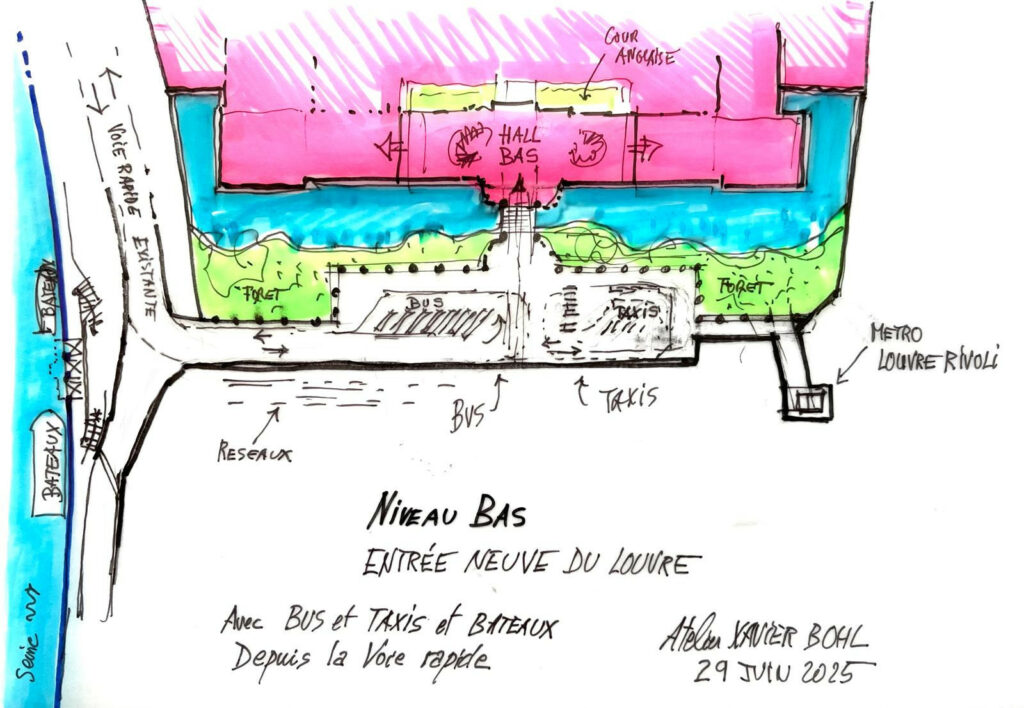 COUR
ANGLAISE
VOIE RAPIDE EXISTANTE
HALL
BAS
BATEAUX
FORET
BUS
TAXIS
FORET
METRO
LOUVRE RIVOLI
BUS
TAXIS
RESEAUX
BATEAUX
NIVEAU BAS
ENTRÉE NEUVE DU LOUVRE
Avec BUS et TAXIS et BATEAUX
Depuis la Voie rapide
Seine
Atelier XAVIER BOHL
29 JUIN 2025